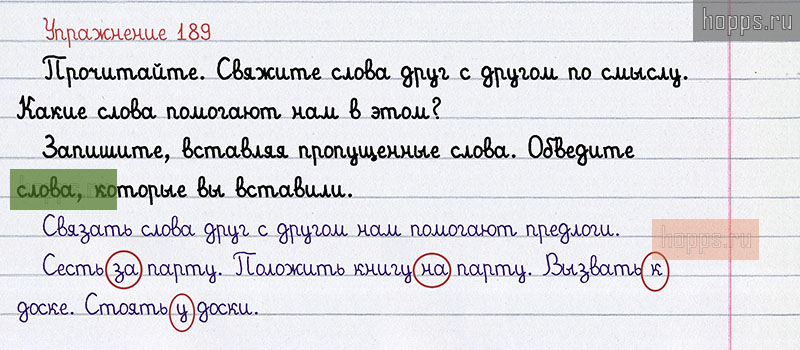 hopps.ru
Упражнение 189
Прочитайте. Свяжите слова друг с другом по смыслу.
Какие слова помогают нам в этом?
Запишите, вставляя пропущенные слова. Обведите
слова, которые вы вставили.
Связать слова друг с другом нам помогают предлоги.
hopps.ru
Сесть за парту. Положить книгу на парту. Вызвать к
доске. Стоять у доски.